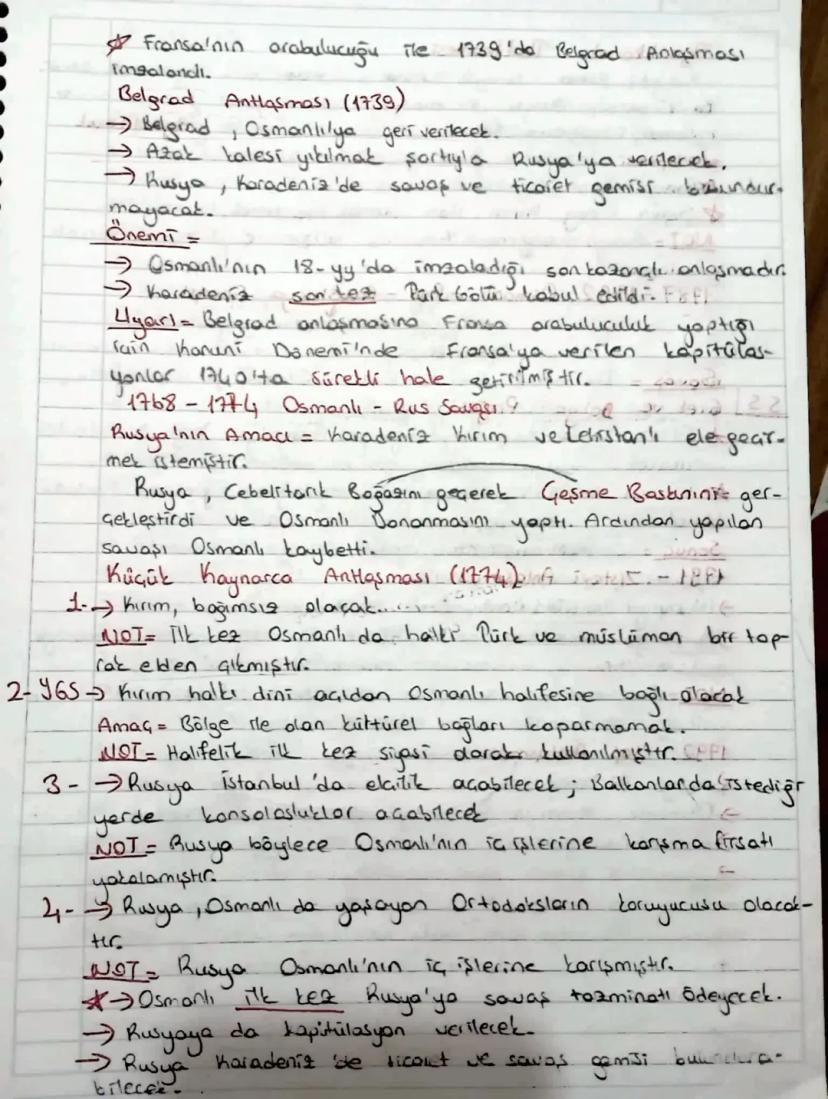 ☆ Fransa'nın arabulucuğu ile 1739'da Belgrad Anlaşması
imzalandı.
Belgrad Antlaşması (1739)
→ Belgrad, Osmanlı'ya geri verilecek.
→ Azak kalesi yıkılmak şartıyla Rusya'ya verilecek.
→ Rusya, Karadeniz'de savaş ve ticaret gemisi bulundur-
mayacak.
Önemi =
→ Osmanlı'nın 18-yy'da imzaladığı son kazançlı anlaşmadır.
→ Karadeniz son kez Türk Gölü kabul edildi.
Uyarı = Belgrad anlaşmasına Fransa arabuluculuk yaptığı
için Kanuni Dönemi'nde Fransa'ya verilen kapitülas-
yonlar 1740'ta sürekli hale getirilmiştir.
1768 - 1774 Osmanlı - Rus Savaşı
Rusya'nın Amacı = Karadeniz Kırım ve Lehistan'ı ele geçir-
mek istemiştir.
Rusya, Cebelitarık Boğazını geçerek Çeşme Baskınını ger-
çekleştirdi ve Osmanlı Donanmasını yaptı. Ardından yapılan
savaşı Osmanlı kaybetti.
Küçük Kaynarca Antlaşması (1774)
1- → Kırım, bağımsız olacak.
NOT = İlk kez Osmanlı da halkı Türk ve müslüman bir top
rak elden çıkmıştır.
2- YGS → Kırım halkı dini açıdan Osmanlı halifesine bağlı olacak
Amaç = Bölge ile olan kültürel bağları koparmamak.
NOT = Halifelik ilk kez siyasi olarak kullanılmıştır.
3- → Rusya İstanbul'da elçilik açabilecek; Balkanlarda istediği
yerde konsolosluklar açabilecek
NOT = Rusya böylece Osmanlı'nın iç işlerine karışma fırsatı
yakalamıştır.
4- → Rusya, Osmanlı da yaşayan Ortodoksların koruyucusu olacak-
tır.
NOT = Rusya Osmanlı'nın iç işlerine karışmıştır.
☆ → Osmanlı ilk kez Rusya'ya savaş tazminatı ödeyecek.
→ Rusyaya da kapitülasyon verilecek.
→ Rusya Karadeniz'de ticaret ve savaş gemisi bulundura-
bilecek.